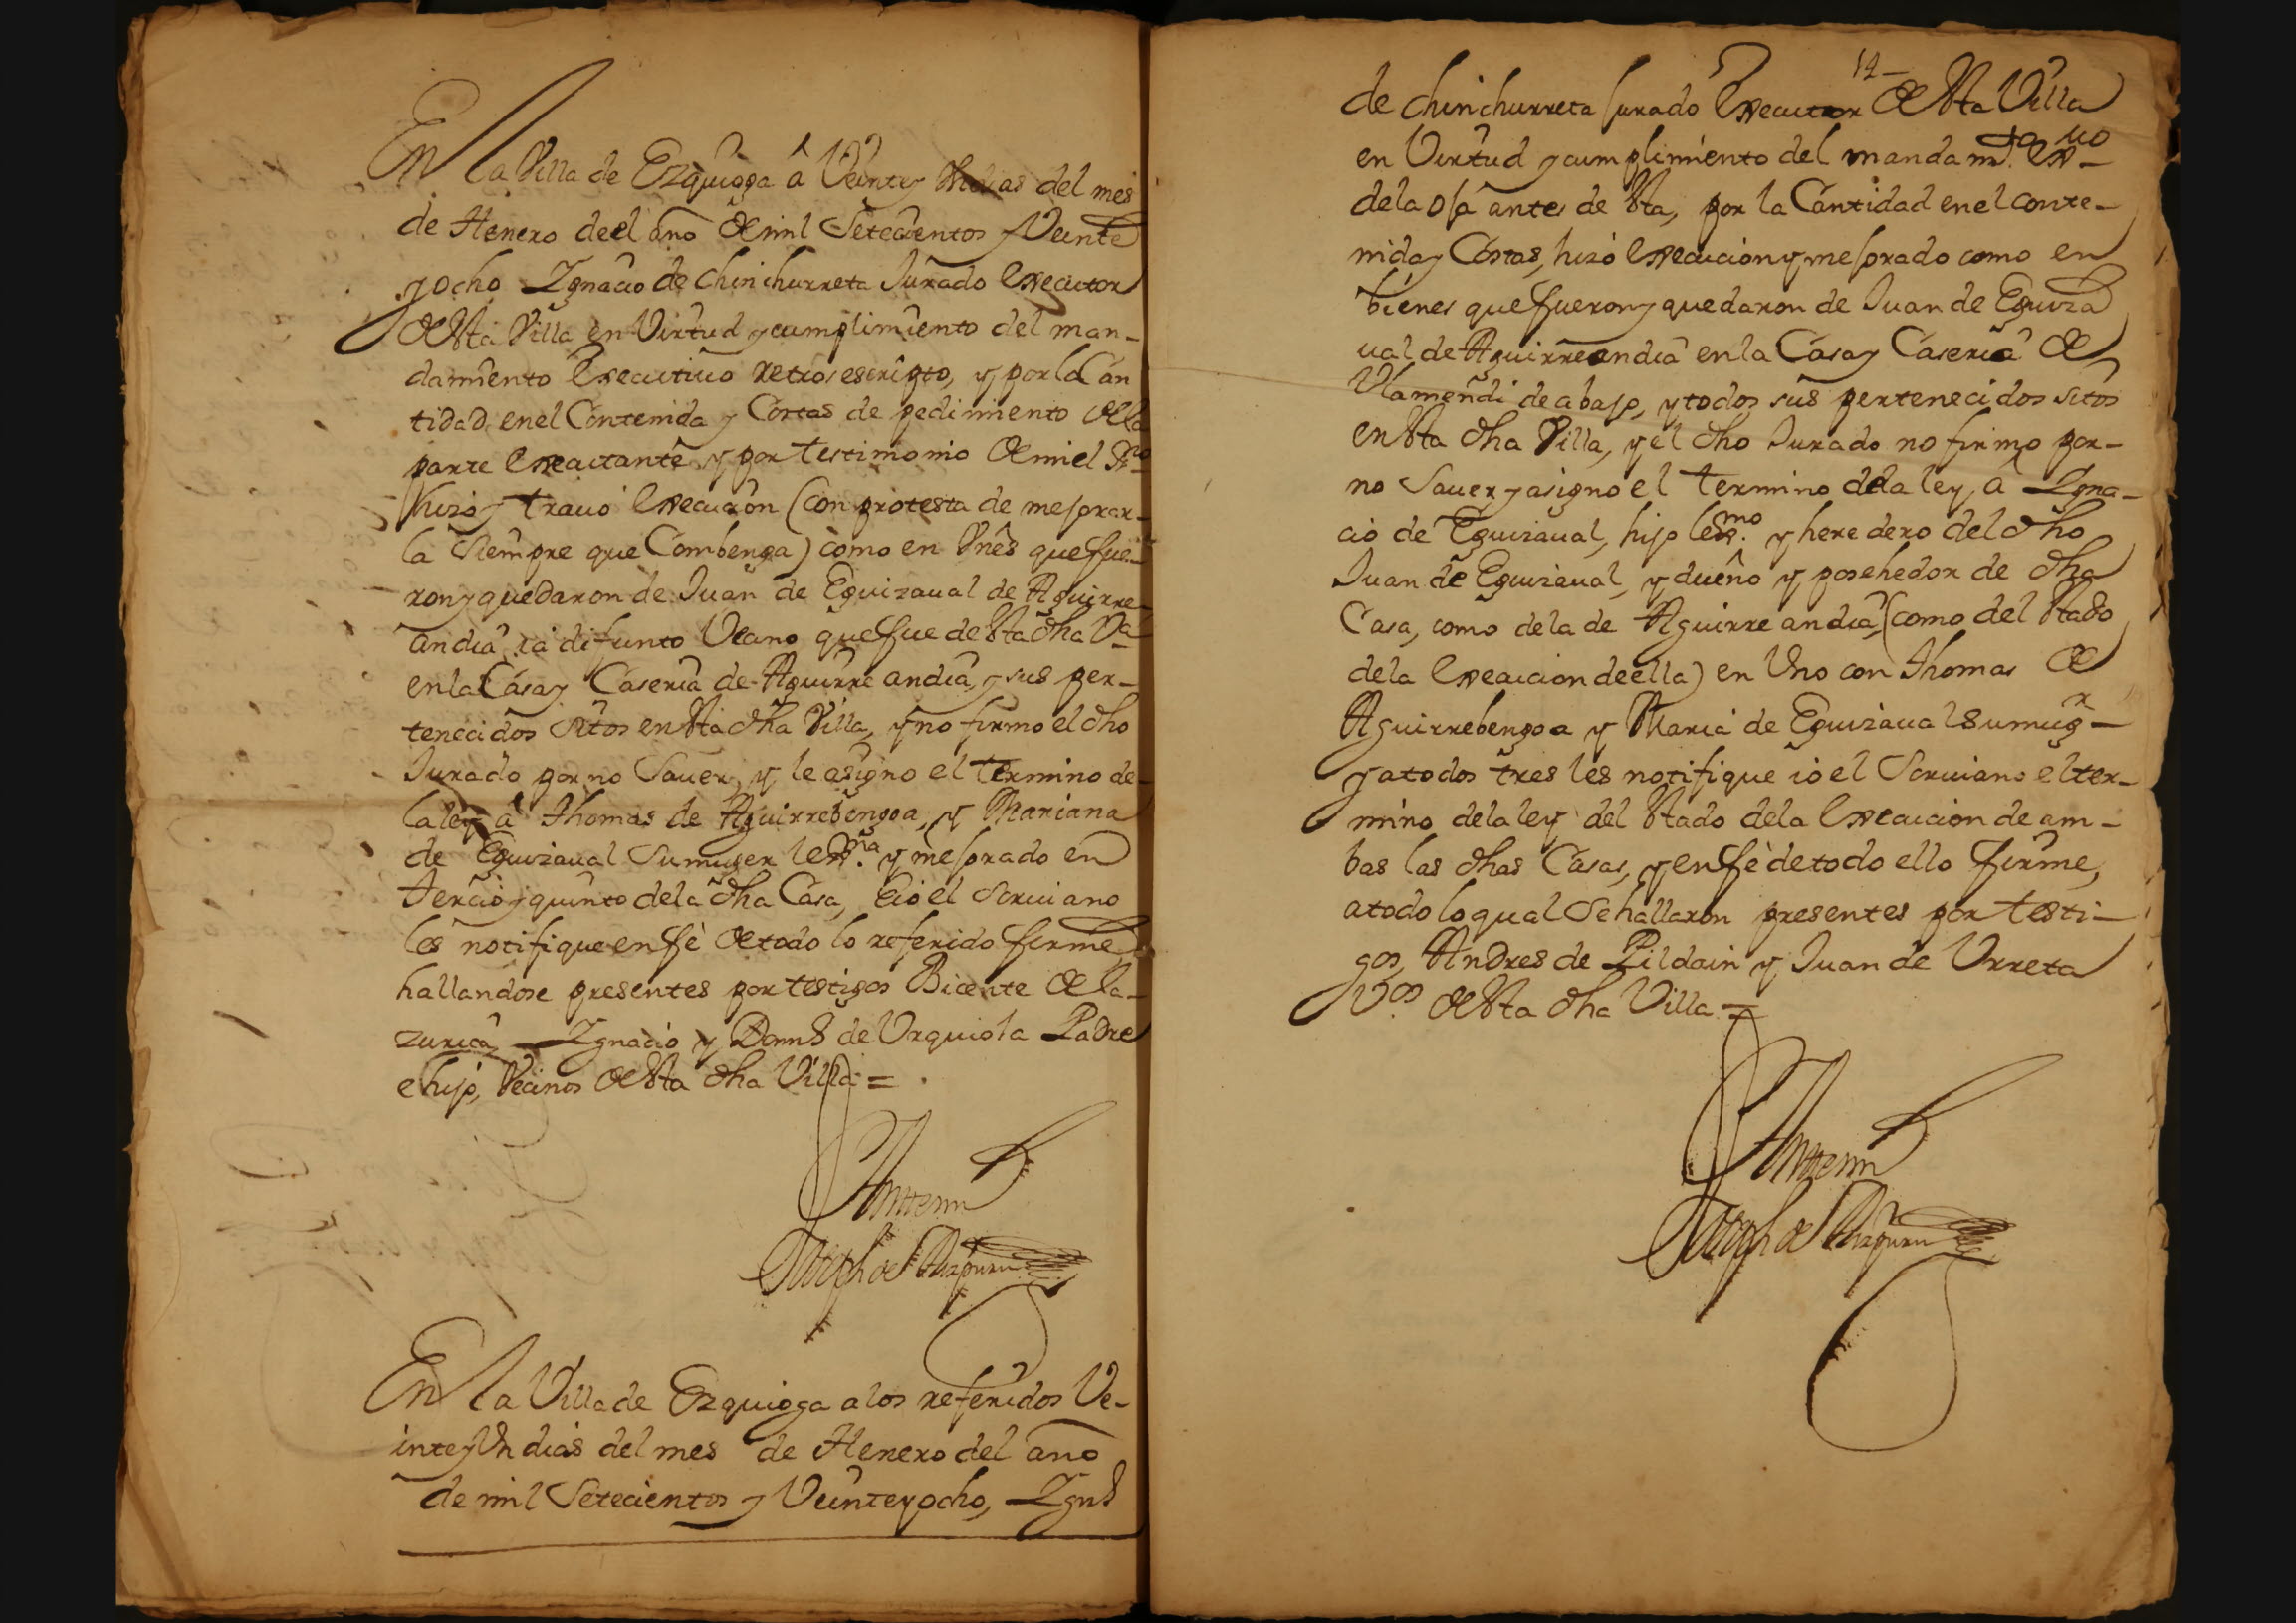 En la Villa de Ezquioga â Veinte y Un dias del mes
de Henero de el año de mil Setecientos y Veinte
y ocho Ygnacio de Chinchurreta Jurado Executor
de Vta Villa en Virtud y cumplimiento del man-
damiento Executiuo retroescripto, y por la Can
tidad en el Contenida y Costas de pedimiento de la
parte Exactante y por testimonio de mi el Ssno
hizo y trauó Execucion (con protesta de mejorar-
la Siempre que Combenga) como en Vnês que fue-
ron y quedaron de Juan de Eguizaual de Aguirre-
andia ia difunto Vecino que fue de Vta dha Va
en la Casa y Caseria de Aguirre andia, y sus per-
tenecidos Sitos en Vta dha Villa, y no firmo el dho
Jurado por no Sauer, y le asigno el termino de-
la ley â Thomas de Aguirrebengoa, y Mariana
de Eguizaual Su muger lexma. y mejorado en
tercio y quinto de la dha Casa, E io el Scriuano
les notifique en fè de todo lo referido firme,
hallandose presentes por testigos Bicente de la-
zurica, Ygnacio y Domo de Urquiola Padre
e hijo, Vecinos de Vta dha Villa =
Antemi
Joseph de Aizpuru
En la Villa de Ezquioga a los referidos Ve-
inte y Un dias del mes de Henero del año
de mil Setecientos y Veinte y ocho, Ygno
14
de Chinchurreta Jurado Executor de Vta Villa
en Virtud y cumplimiento del mandamto. Exuo
de la oja antes de Vta, por la Cantidad en el conte-
nida y Costas, hizo Execucion y mejorado como en
bienes que fueron y quedaron de Juan de Eguiza
ual de Aguirreandia en la Casa y Caseria de
Vlamendi de abajo, y todos sus pertenecidos sitos
en Vta dha Villa, y el dho Jurado no firmo por-
no Sauer y asigno el termino de la ley, â Ygna-
cio de Eguizaual, hijo lexmo. y heredero del dho
Juan de Eguizaual, y dueño y posehedor de dha
Casa, como de la de Aguirre andia, (como del Vtado
de la Execucion de ella) en Uno con Thomas de
Aguirrebengoa y Maria de Eguizaual su mugr
y a todos tres les notifique io el Scriuano el ter-
mino de la ley del Vtado de la Execucion de am-
bas las dhas Casas, y en fè de todo ello firme,
a todo lo qual Se hallaron presentes por testi-
gos, Andres de Pildain y Juan de Urreta
Vos. de Vta dha Villa =
Antemi
Joseph de Aizpuru